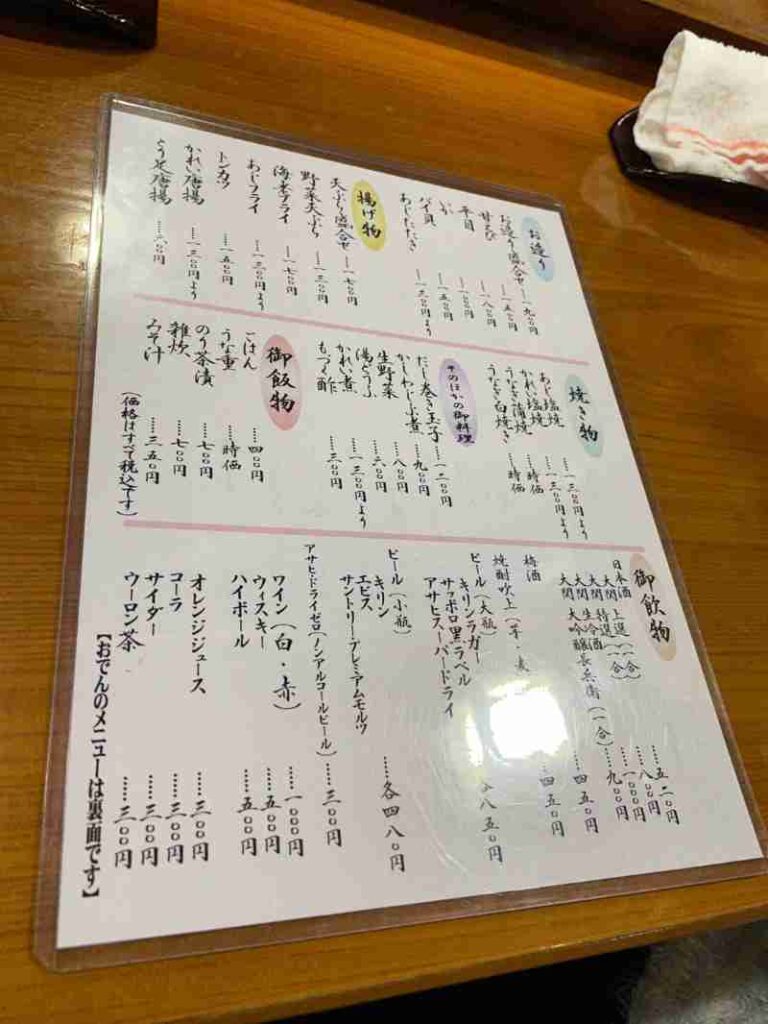 お造り
お造り盛合せ
甘えび
平目
いか
バイ貝
あじたたき
揚げ物
天ぷら盛合せ …一七〇〇円
野菜天ぷら …一三〇〇円
海老フライ …一七〇〇円
あじフライ …一三〇〇円より
トンカツ …一五〇〇円
かれい唐揚 …一三〇〇円より
唐揚 …六〇〇円
焼き物
あじ塩焼 …一三〇〇円より
かれい塩焼 …一三〇〇円より
うなぎ蒲焼 …時価
うなぎ白焼き …時価
そのほかの御料理
だし巻き玉子 …一二〇〇円
かしわじぶ煮 …九〇〇円
生野菜 …八〇〇円
湯どうふ …六〇〇円
かれい煮 …一三〇〇円より
もづく酢
御飯物
ごはん ……四〇〇円
うな重 ……時価
のり茶漬 ……七〇〇円
雑炊 ……七〇〇円
みそ汁 ……三五〇円
(価格はすべて税込です)
御飲物
日本酒
大関 上選(一合) ……五二〇円
大関 特選(一合) ……八〇〇円
大関 生冷酒 ……一〇〇〇円
大関 大吟醸長兵衛(一合) ……九〇〇円
梅酒 ……四五〇円
焼酎吹上(芋・麦 …四五〇円
ビール(大瓶)
キリンラガー
サッポロ黒ラベル
アサヒスーパードライ
八五〇円
ビール(小瓶)
キリン
エビス
サントリー・プレミアムモルツ
……各四八〇円
アサヒ・ドライゼロ(ノンアルコールビール) ……三〇〇円
ワイン(白・赤) ……一〇〇〇円
ウィスキー ……五〇〇円
ハイボール ……五〇〇円
オレンジジュース ……三〇〇円
コーラ ……三〇〇円
サイダー ……三〇〇円
ウーロン茶 ……三〇〇円
【おでんのメニューは裏面です】